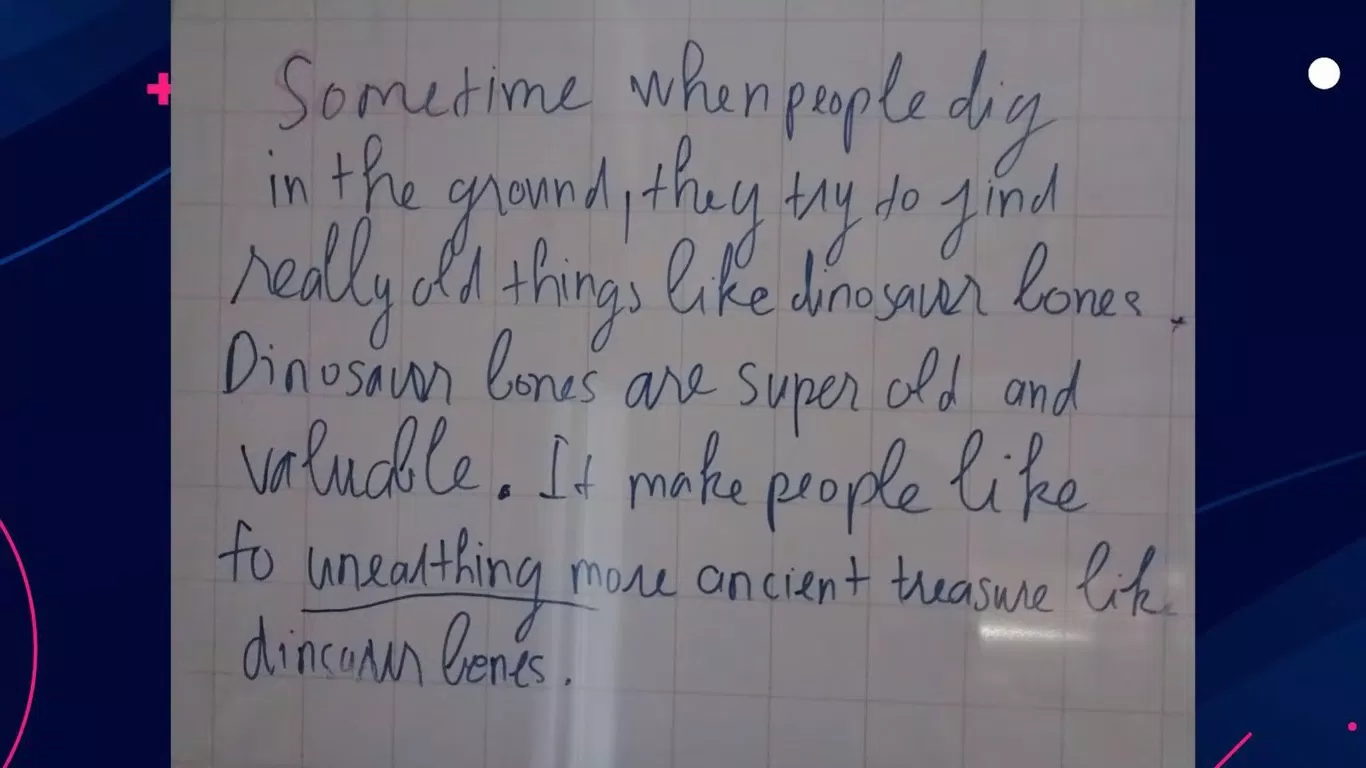 Sometime when people dig
in the ground, they try to find
really old things like dinosaur bones.
Dinosaur bones are super old and
valuable. It make people like
to unearthing more ancient treasure lik
dinosaur bones.